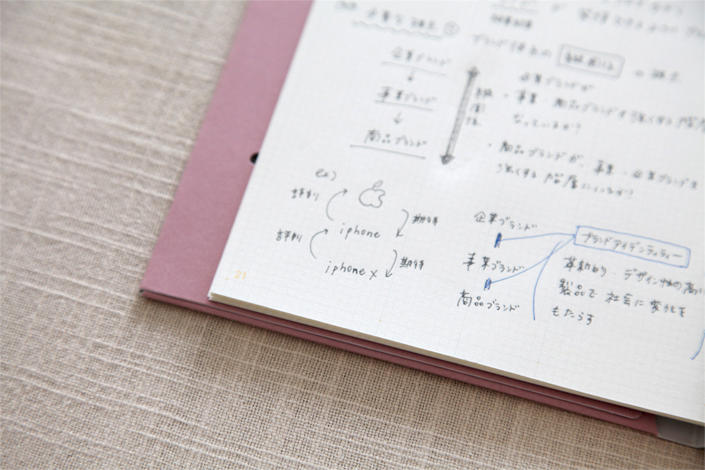 企業ブランド
↓
事業ブランド
↓
商品ブランド
企業ブランドが
・事業・商品ブランドを強くする階層に
なっているか?
・商品ブランドが、事業・企業ブランドを
強くする階層にいるか?
ex)
評判
期待
iphone
評判
期待
iphone x
企業ブランド
事業ブランド
商品ブランド
ブランドアイデンティティー
革新的 デザイン性の高い
製品で 社会に変化を
もたらす
21